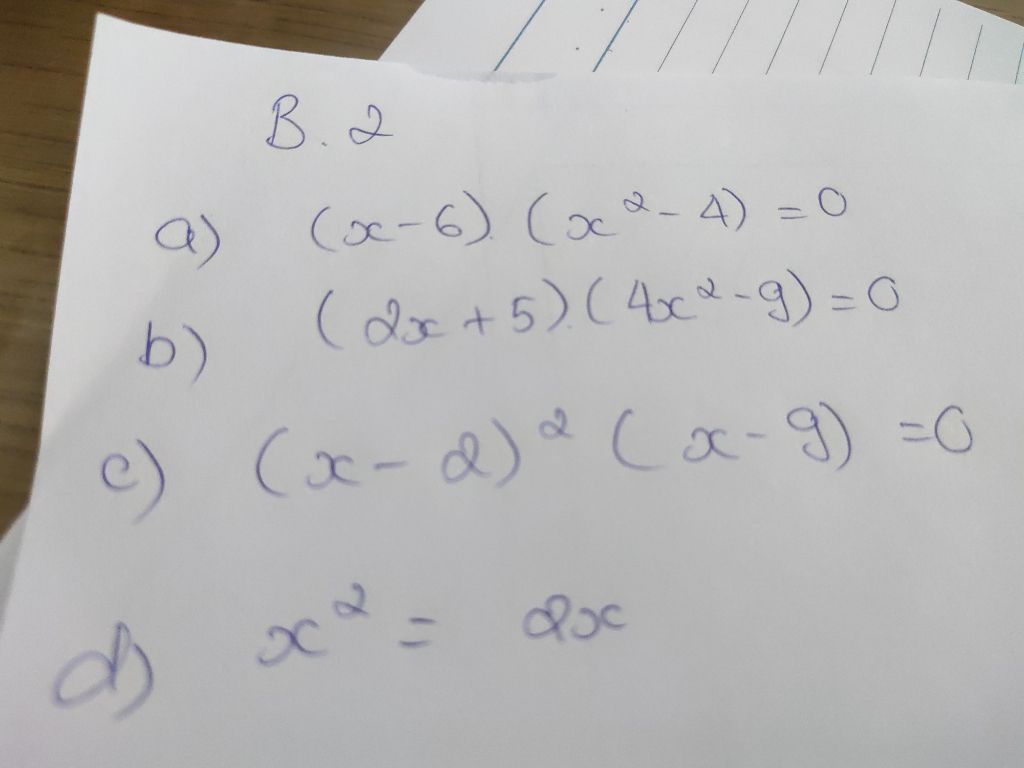 B.2
a) (x-6).(x²-4)=0
b) (2x+5).(4x²-9)=0
c) (x-2)²(x-9)=0
d) x²= 2x